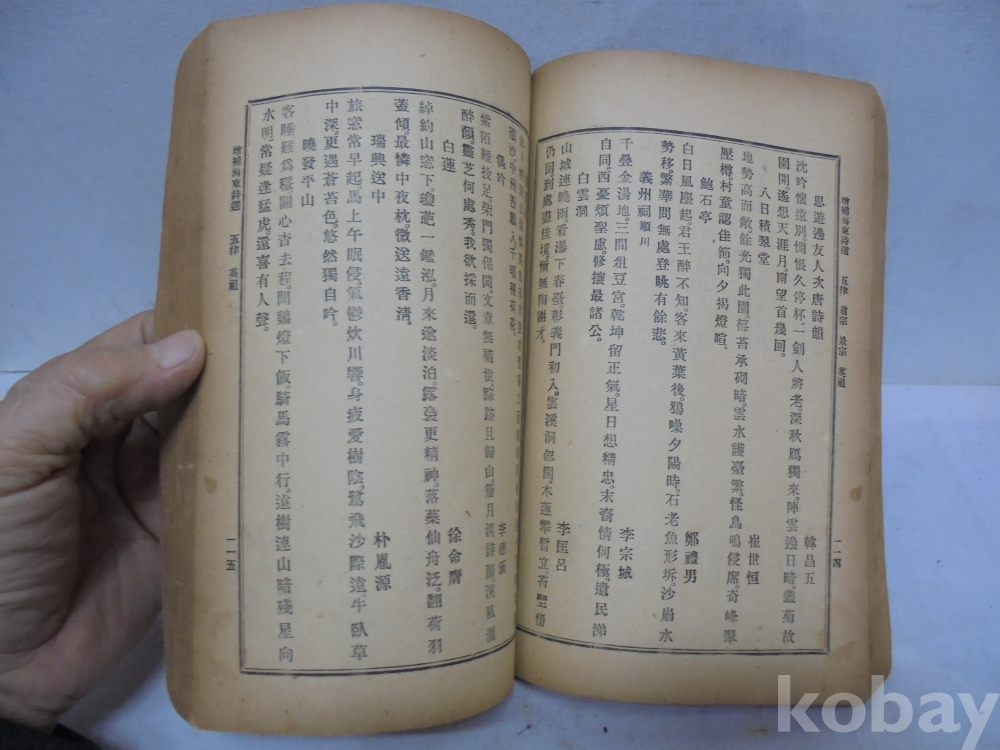 增補海東詩選 五律 肅宗 景宗 英祖
一一四
思遊邊友人次唐詩韻
韓昌五
沈吟懷遠別惆悵久停杯一劍人將老深秋鴈獨來陣雲邊日暗叢菊故
園開遙想天涯月南望首幾回
八日積翠堂
崔世恒
地勢高而敞餘光獨此園蒼苔承砌暗雲水護臺繁怪鳥鳴侵席奇峰翠
壓樽村童認佳節向夕揭燈喧
鮑石亭
鄭禮男
白日風塵起君王醉不知客來黃葉後鴉噪夕陽時石老魚形坼沙崩水
勢移繁華問無處登眺有餘悲
義州祠順川
李宗城
千疊金湯地三間俎豆宮乾坤留正氣星日想精忠末裔情何極遺民涕
自同西憂煩聖慮修攘最諸公
白雲洞
李匡呂
山城連曉雨看瀑下春臺彰義門初入雲漢洞包開木蓮攀暫立苔壁傍
仍回到處盡佳境慚無陶謝才
偶吟
李
紫陌難投足柴門獨保閒文章無補世踪跡且歸山月清詩溪風
醉顏靈芝何處秀我欲採而還
白蓮
徐命膺
綽約山窓下瓊葩一鑑泓月來逾淡泊露裛更精神落藥仙舟泛翻荷羽
蓋傾最憐中夜枕微送遠香清
瑞興送中
朴胤源
旅窓常早起馬上午眠侵氣鬱炊川響身疲愛樹陰鷺飛沙際遠牛臥草
中深更遇蒼苔色悠然獨自吟
曉發平山
客睡難爲穩關心古去程聞鷄燈下飯騎馬霧中行遠樹連山暗殘星向
水明常疑逢猛虎還喜有人聲
增補海東詩選 五律 英祖
一一五
kobay